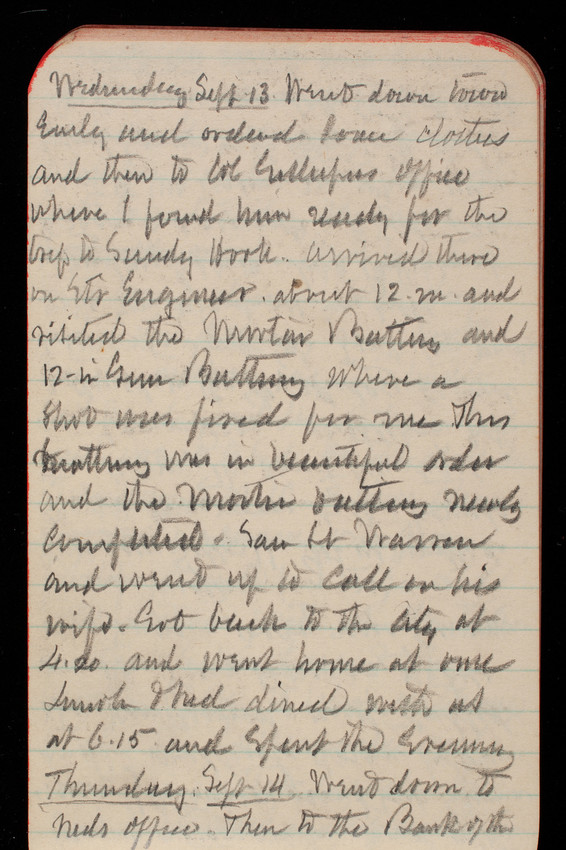 Wednesday Sept 13 Went down town
Early and ordered some clothes
and then to Col Gillespies office
where I found him ready for the
trip to Sandy Hook. Arrived there
on Str Engineer. about 12. m. and
visited the Mortar Battery and
12-in Gun Battery where a
Shot was fired for me This
battery was in beautiful order
and the Mortar battery newly
Completed. Saw Lt Warren
and went up to Call on his
wife. Got back to the City at
4.20. and went home at once
& Ned dined with us
at 6.15 and Spent the Evening
Thursday. Sept 14. Went down to
Neds office. Then to the Bank of the